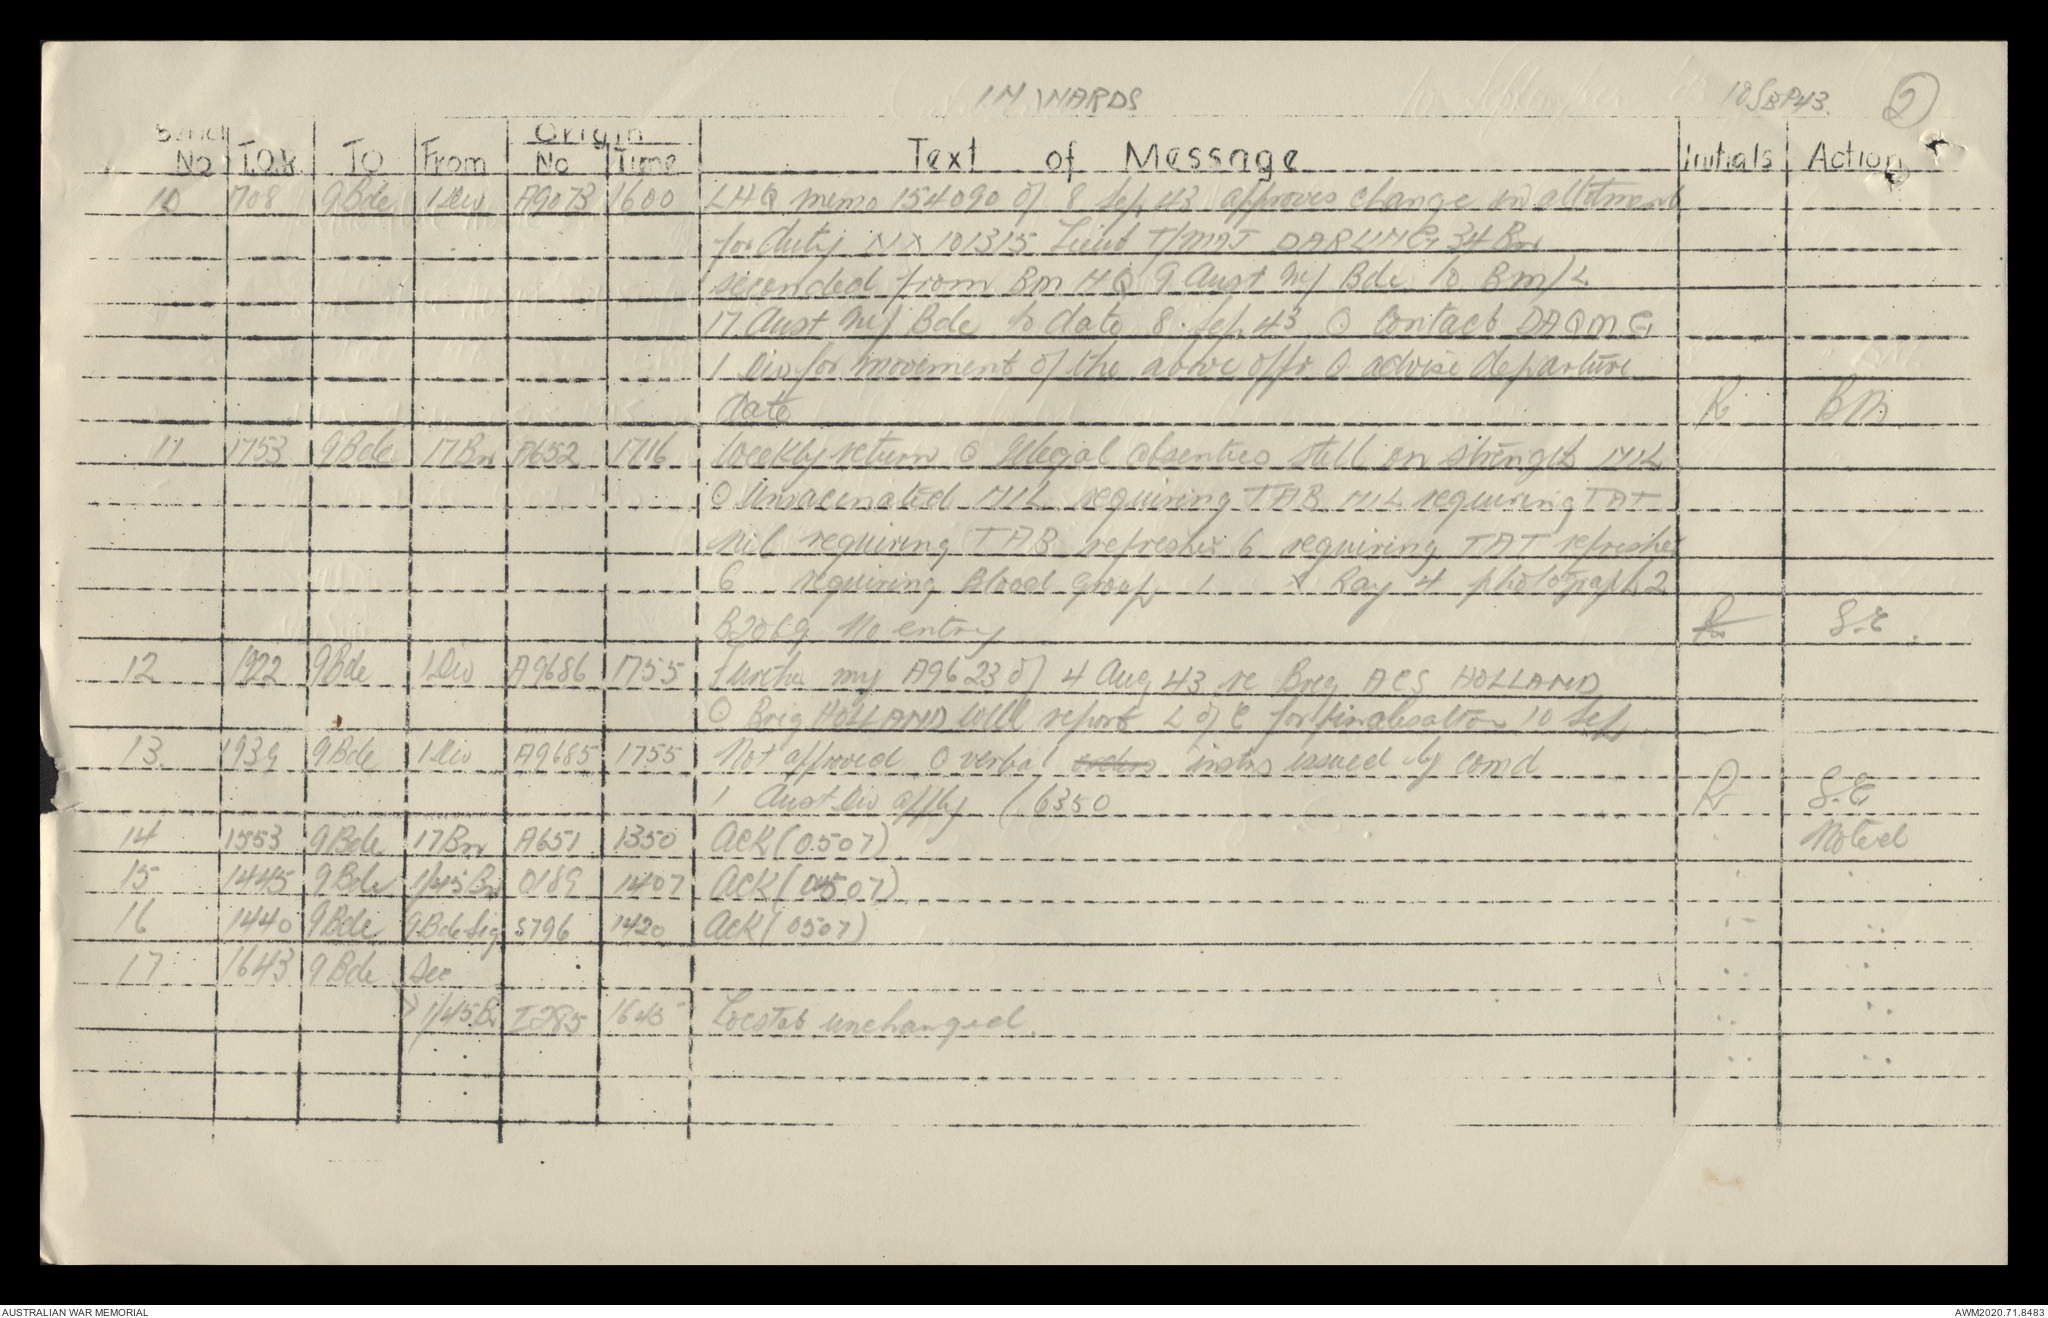 INWARDS 10 SEP 43 2
Serial No T.O.R. TO From Origin No Time Text of Message Initials Action
10 1708 9 Bde 1 Div A9073 1600 LHQ memo 154090 of 8 Sep 43 approves change in allotment
for duty NX 101315 Lieut T/MAJ DARLING 34 Bn
seconded from BM HQ 9 Aust Inf Bde to BM/L
17 Aust Inf Bde to date 8 Sep 43 O Contact DAQMG
1 Div for movement of the above offr O advise departure
date R BM
11 1753 9 Bde 17 Bn A652 1716 Weekly return O Illegal absentees still on strength NIL
O Unvacinated NIL requiring TAB NIL requiring TAT
Nil requiring TAB refresher 6 requiring TAT refresher
6 requiring Blood Group 1 X Ray 4 photograph 2
No entry R S.C.
12 1922 9 Bde 1 Div A9686 1755 Further my A9623 of 4 Aug 43 re Brig ACS HOLLAND
O Brig HOLLAND will report L of C for finalisation 10 Sep
13 1939 9 Bde 1 Div A9685 1755 Not approved O verbal orders instns issued by comd
1 Aust Div apply (6350 R S.C.
14 1553 9 Bde 17 Bn A651 1350 ACK (0507) Noted
15 1445 9 Bde 1/45 Bn O189 1407 ACK (0507)
16 1440 9 Bde 9 Bde Sig S796 1420 ACK (0507)
17 1643 9 Bde Sec
1/45 Bn I285 1645 Locstat unchanged
AUSTRALIAN WAR MEMORIAL AWM2020.71.8483